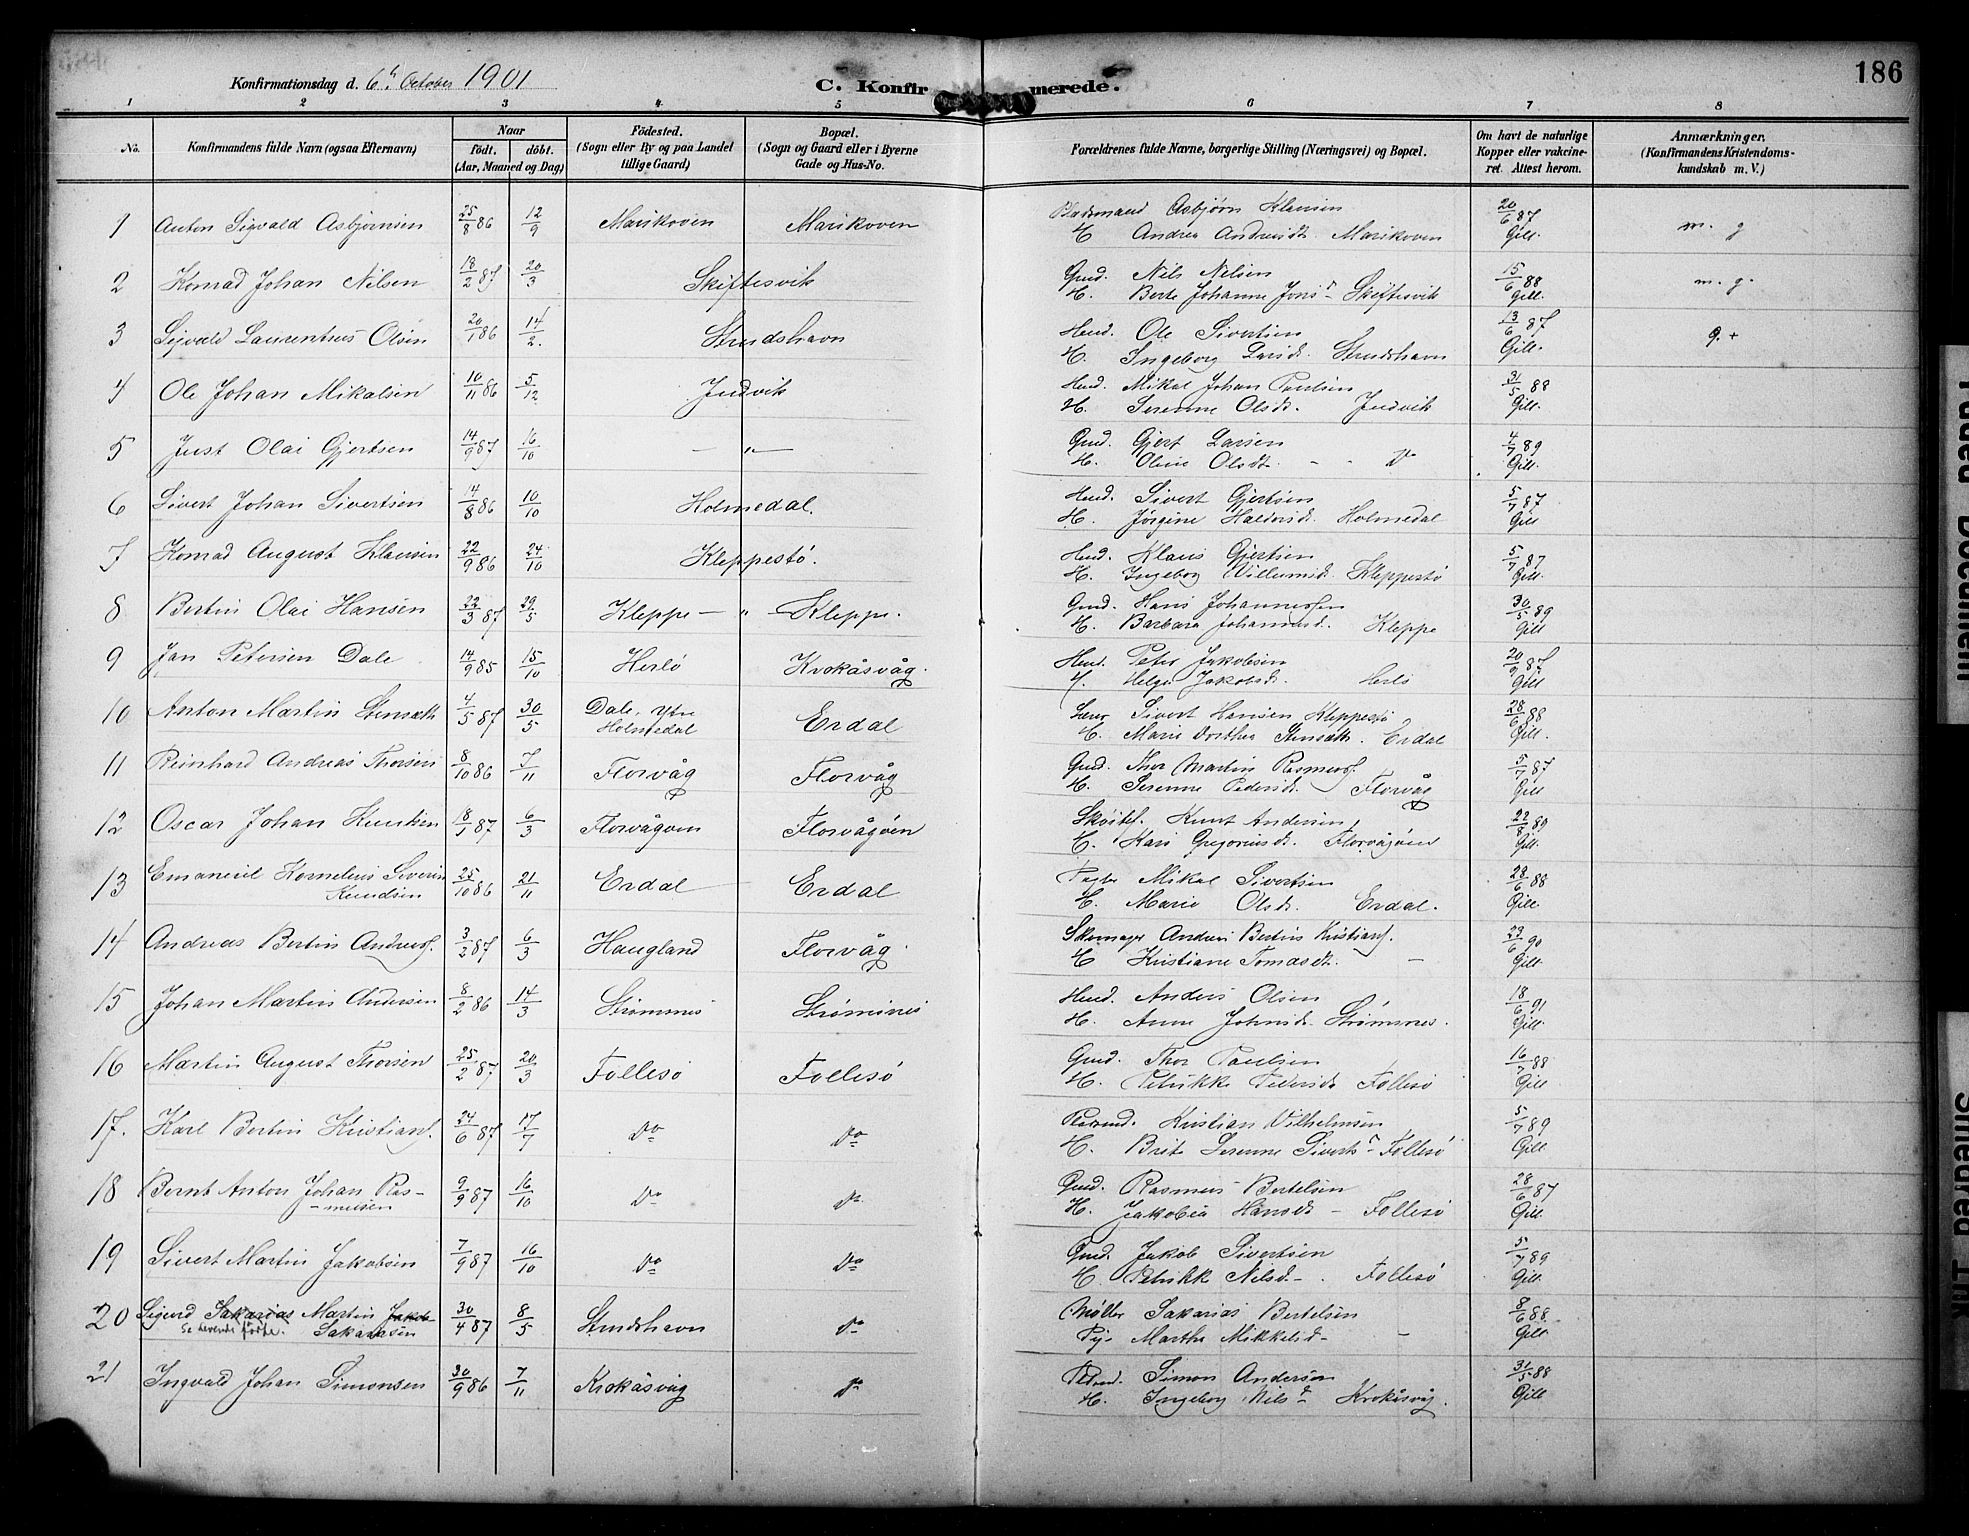 186
Konfirmationsdag d. 6h October 1901
C. Konfirmerede.
1 2 3 4 5 6 7 8
No. Konfirmandens fulde Navn (ogsaa Efternavn) Naar Födt. döbt. (Aar, Maaned og Dag) Födested. (Sogn eller By og paa Landet tillige Gaard) Bopæl. (Sogn og Gaard eller i Byerne Gade og Hus-No. Forældrenes fulde Navne, borgerlige Stilling (Næringsvei) og Bopæl. Om havt de naturlige Kopper eller vakcineret. Attest herom. Anmærkninger. (Konfirmandens Kristendomskundskab m. V.)
1 Anton Sigvald Asbjørnsen 25/8 86 12/9 Marikoven Marikoven Pladsmand Asbjørn Klausen 20/6 87 m. g
H Andrea Andreisdt. Marikoven Gill.
2 Konrad Johan Nilsen 18/2 87 20/3 Skiftesvik Gmd. Nils Nilsen 15/6 88 m. g.
H. Berte Johanne Jonsd Skiftesvik Gill.
3 Sigvald Laurentius Olsen 20/1 86 14/2. Strudshavn Hmd. Ole Sivertsen 13/6 87 g. +
H. Ingeborg Larsdt. Strudshavn Gill.
4 Ole Johan Mikalsen 10/11 86 5/12 Judvik Hmd. Mikal Johan Paulsen 31/5 88
H. Serenne Olsdt. Judvik Gill.
5 Just Olai Gjertsen 14/9 87 16/10 — " — Gmd. Gjert Larsen 4/7 89
H. Oline Olsdt. - - Do Gill.
6 Sivert Johan Sivertsen 14/8 86 10/10 Holmedal. Hmd. Sivert Gjertsen 5/7 87
H. Jørgine Haldorsd. Holmedal Gill
7 Konrad August Klausen 22/9 86 24/10 Kleppestö. Hmd. Klaus Gjertsen 5/7 87
H. Ingeborg Villumsd. Kleppestö Gill.
8 Bertin Olai Hansen 22/3 87 29/5 Kleppe — " — Kleppe. Gmd. Hans Johannessen 30/5 89
H. Barbara Johannesd. Kleppe Gill
9 Jan Petersen Dale 14/9 85 15/10 Herlö Krokåsvåg. Hmd. Peter Jakobsen 20/9 87
H. Helge Jakobsd. Herlö Gill
10 Anton Martin Stensæth 4/5 87 30/5 Dale, Ytre Holmedal Erdal Sivert Hansen Kleppestö 28/6 88
H. Marie Dorthea Stensæth. Erdal Gill.
11 Reinhard Andreas Thorsen 8/10 86 7/11 Florvåg Florvåg Gmd. Thor Martin Rasmuss. 5/7 87
H. Serenne Pedersdt. Florvåg Gill
12 Oscar Johan Knudsen 18/1 87 6/3 Florvågöen Florvågöen Knut Andersen 22/8 89
H. Kari Gregoriusdt. Florvågöen Gill.
13 Emanuel Kornelius Severin 25/10 86 21/11 Erdal Erdal Mikal Sivertsen 28/6 88
Knudsen H. Marie Olsdt. Erdal. Gill.
14 Andreas Bertin Andreass. 3/2 87 6/3 Haugland Florvåg Skomager Andreas Bertin Kristians. 23/6 90
H Kristiane Tomasdt. — Gill.
15 Johan Martin Andersen 8/2 86 14/3 Strømmes Strømmes Hmd. Anders Olsen 18/6 91
H. Anne Johnsdt. Strømmes. Gill.
16 Martin August Thorsen 25/2 87 20/3 Follesö Follesö Gmd. Thor Paulsen 16/7 88
H. Petrikke Pedersdt Follesö Gill
17. Karl Bertin Kristians. 24/6 87 17/7 Do Do Kristian Vilhelmsen 5/7 89
H. Brite Serenne Siverts d Follesö Gill
18 Bernt Anton Johan Ras- 9/9 87 16/10 Do Do Gmd. Rasmus Bertelsen 28/6 87
-musen H. Jakobea Hansdt — Follesö Gill.
19 Sivert Martin Jakobsen 7/9 87 16/10 Do Do Gmd. Jakob Sivertsen 5/7 89
H. Petrikk Nilsd — . Follesö Gill
20 Sigurd Sakarias Martin Jakob 30/4 87 8/5 Strudshavn Do Møller Sakarias Bertelsen 8/6 88
Sakariasen Pige Marthe Mikkelsd — Gill
21 Ingvald Johan Simonsen 30/9 86 7/11 Krokåsvåg Do Simon Anderson 31/5 88
H. Ingeborg Nilsd Krokåsvåg. Gill